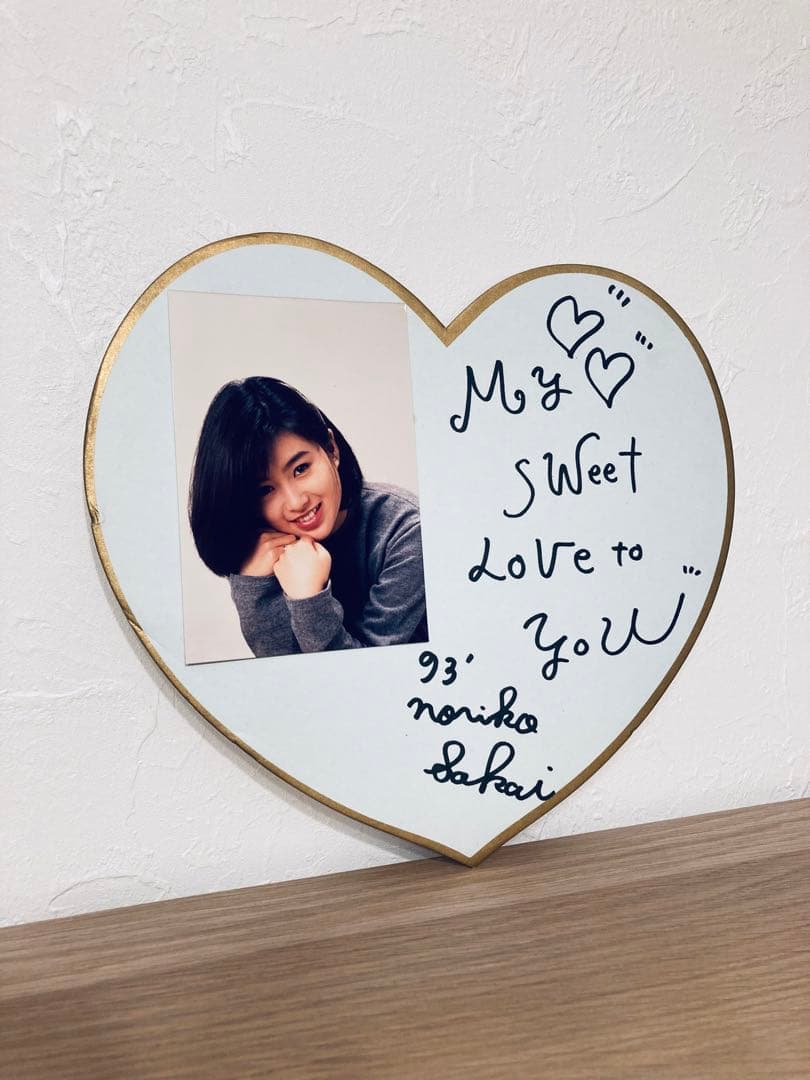 My
sweet
Love to
YoU
93'
noriko
Sakai